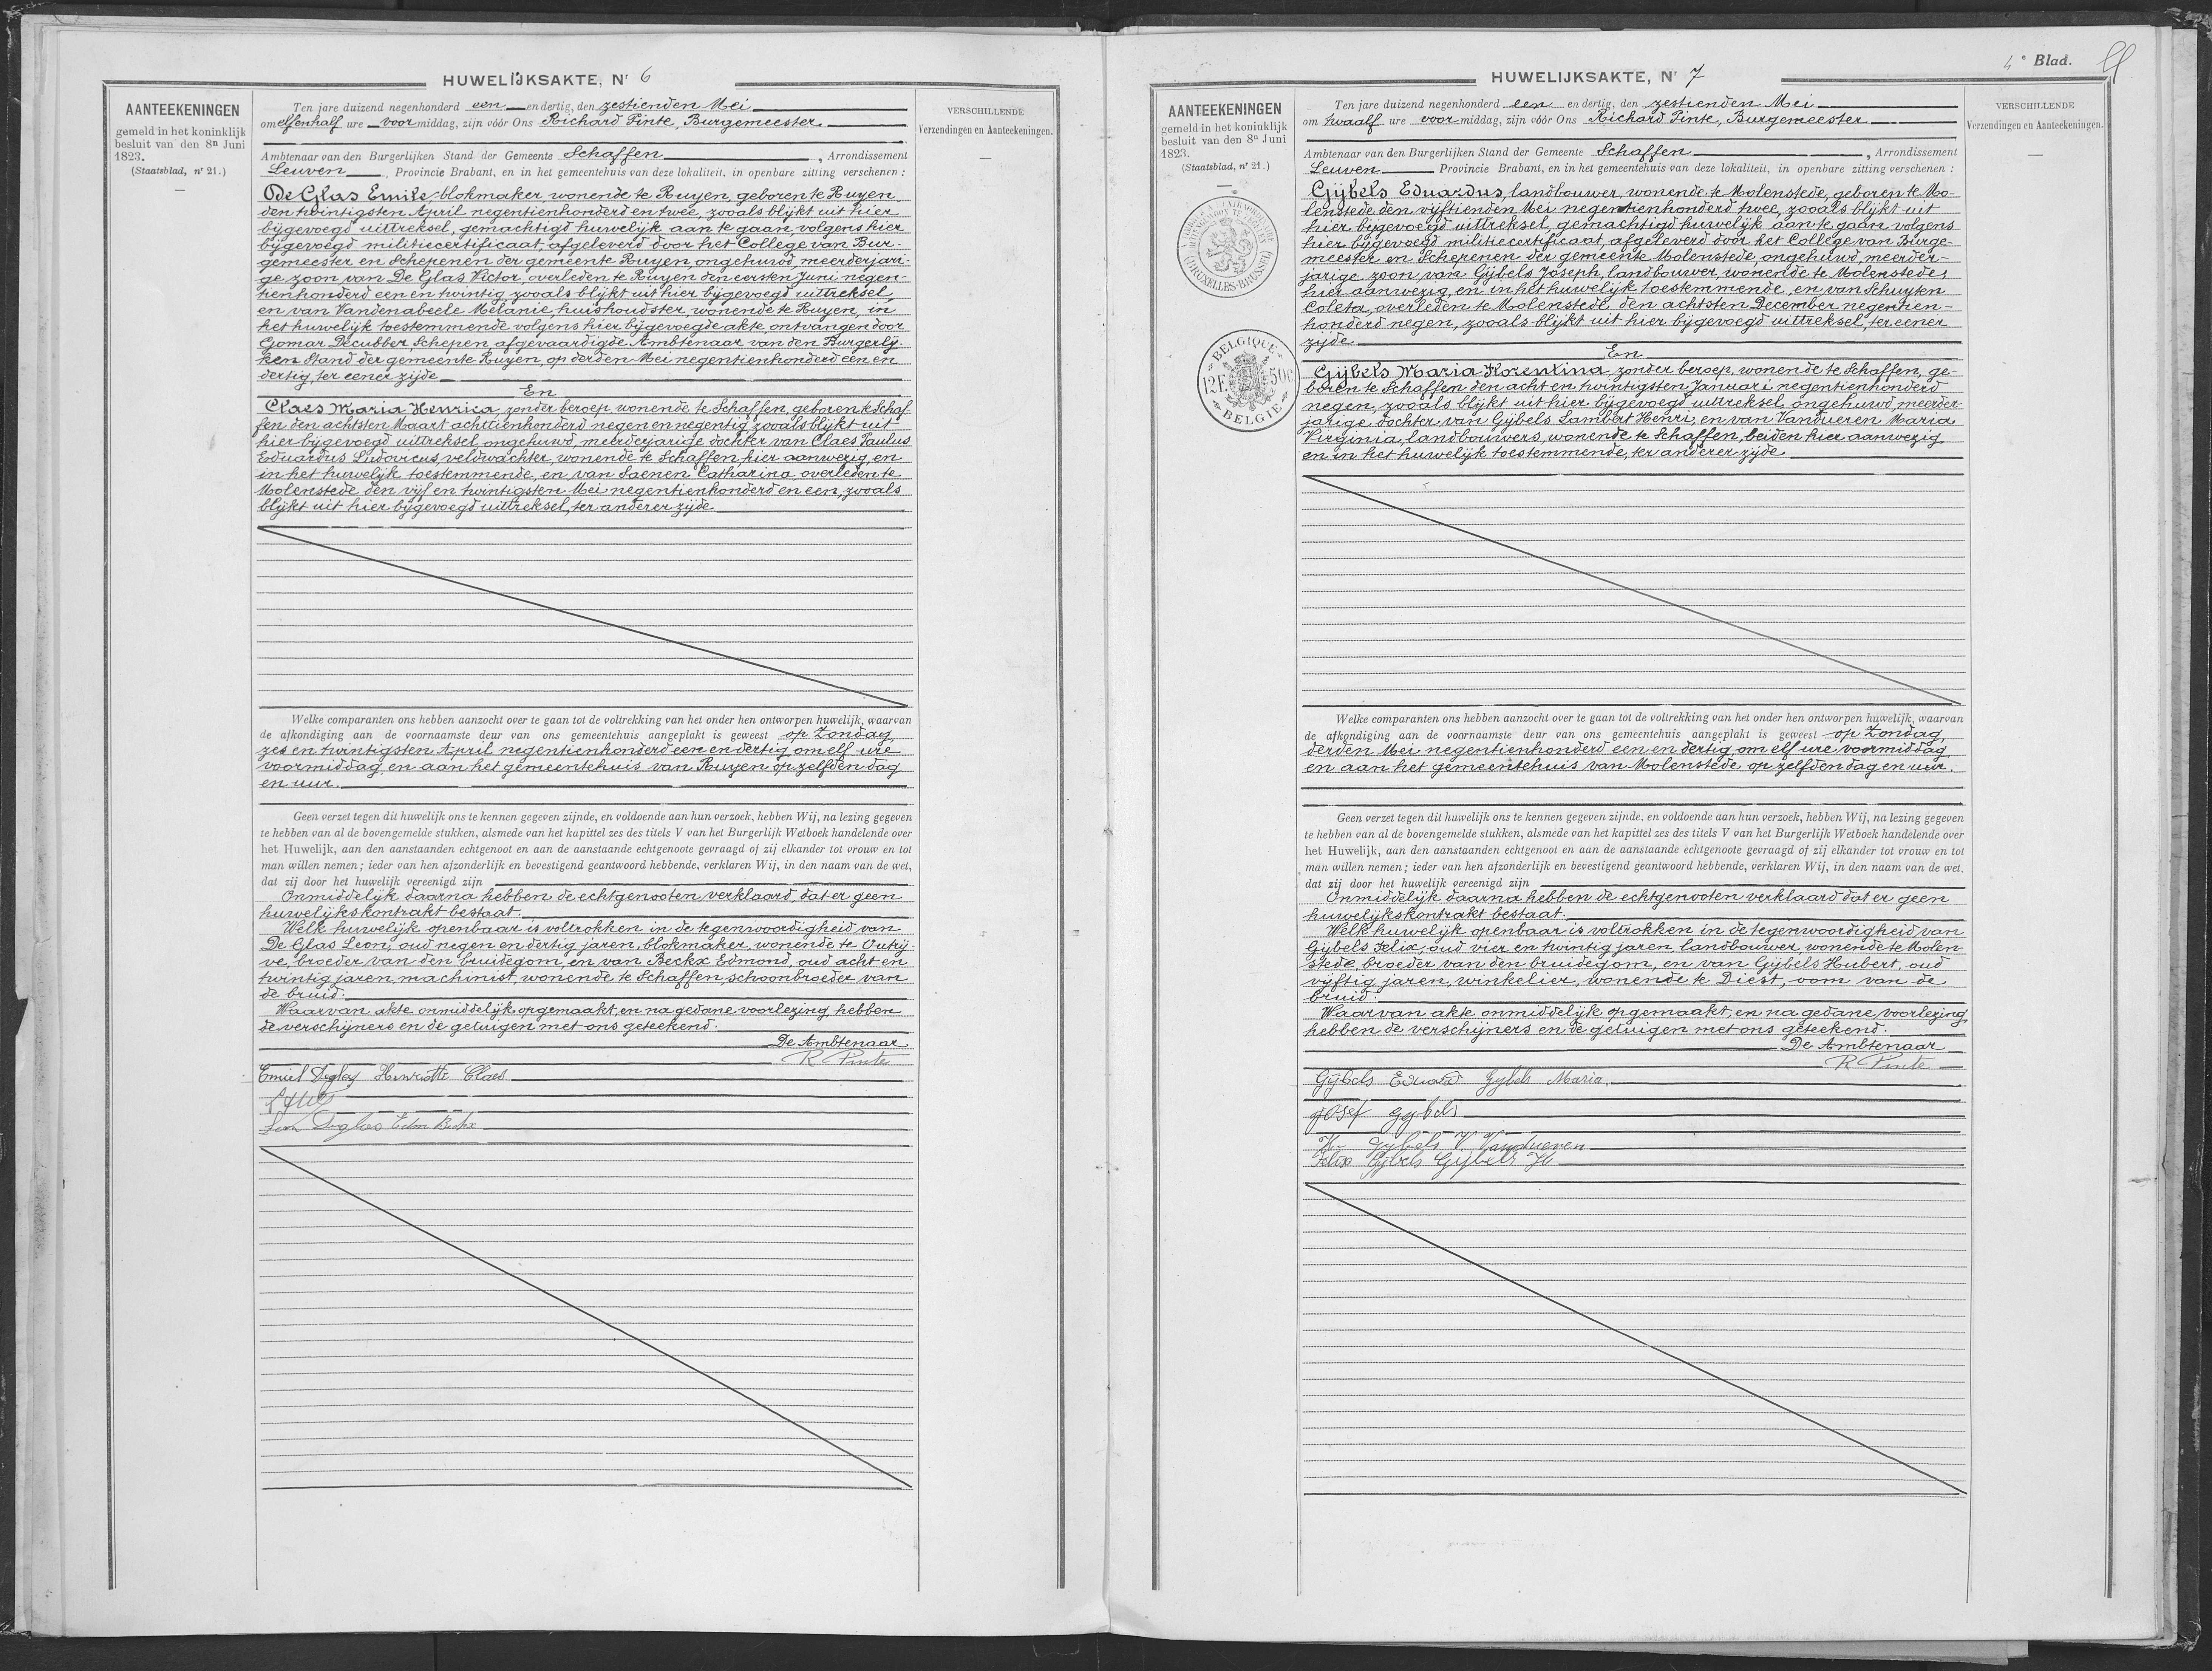 HUWELIJKSAKTE, Nr 6
AANTEEKENINGEN
gemeld in het koninklijk
besluit van den 8n Juni
1823.
(Staatsblad, nr 21.)
Ten jare duizend negenhonderd een en dertig, den zestienden Mei
om elfenhalf ure voor middag, zijn vóór Ons Richard Pinte, Burgemeester
Ambtenaar van den Burgerlijken Stand der Gemeente Schaffen, Arrondissement
Leuven, Provincie Brabant, en in het gemeentehuis van deze lokaliteit, in openbare zitting verschenen :
De Glas Emile, blokmaker, wonende te Ruyen, geboren te Ruyen,
den twintigsten April negentienhonderd en twee, zooals blijkt uit hier
bijgevoegd uittreksel, gemachtigd huwelijk aan te gaan, volgens hier
bijgevoegd militiecertificaat, afgeleverd door het College van Bur-
gemeester en Schepenen der gemeente Ruyen, ongehuwd, meerderjari-
ge zoon van De Glas Victor, overleden te Ruyen den eersten Juni negen-
tienhonderd een en twintig zooals blijkt uit hier bijgevoegd uittreksel,
en van Vandenabeele Melanie, huishoudster, wonende te Ruyen, in
het huwelijk toestemmende volgens hier bijgevoegde akte, ontvangen door
Gomar Decubber Schepen, afgevaardigde Ambtenaar van den Burgerlij-
ken Stand der gemeente Ruyen, op derden Mei negentienhonderd een en
dertig, ter eener zijde
En
Claes Maria Henrica, zonder beroep, wonende te Schaffen, geboren te Schaf-
fen den achtsten Maart achttienhonderd negen en negentig, zooals blijkt uit
hier bijgevoegd uittreksel, ongehuwd, meerderjarige dochter van Claes Paulus
Eduardus Ludovicus, veldwachter, wonende te Schaffen, hier aanwezig, en
in het huwelijk toestemmende, en van Saenen Catharina, overleden te
Molenstede den vijf en twintigsten Mei negentienhonderd en een, zooals
blijkt uit hier bijgevoegd uittreksel, ter anderer zijde
Welke comparanten ons hebben aanzocht over te gaan tot de voltrekking van het onder hen ontworpen huwelijk, waarvan
de afkondiging aan de voornaamste deur van ons gemeentehuis aangeplakt is geweest op Zondag,
zes en twintigsten April negentienhonderd een en dertig, om elf ure
voormiddag en aan het gemeentehuis van Ruyen op zelfden dag
en uur.
Geen verzet tegen dit huwelijk ons te kennen gegeven zijnde, en voldoende aan hun verzoek, hebben Wij, na lezing gegeven
te hebben van al de bovengemelde stukken, alsmede van het kapittel zes des titels V van het Burgerlijk Wetboek handelende over
het Huwelijk, aan den aanstaanden echtgenoot en aan de aanstaande echtgenoote gevraagd of zij elkander tot vrouw en tot
man willen nemen; ieder van hen afzonderlijk en bevestigend geantwoord hebbende, verklaren Wij, in den naam van de wet,
dat zij door het huwelijk vereenigd zijn
Onmiddelijk daarna hebben de echtgenooten verklaard, dat er geen
huwelijkskontrakt bestaat.
Welk huwelijk openbaar is voltrokken in de tegenwoordigheid van
De Glas Leon, oud negen en dertig jaren, blokmaker, wonende te Outrij-
ve, broeder van den bruidegom, en van Beckx Edmond, oud acht en
twintig jaren, machinist, wonende te Schaffen, schoonbroeder van
de bruid.
Waarvan akte onmiddelijk opgemaakt, en na gedane voorlezing, hebben
de verschijners en de getuigen met ons geteekend.
De Ambtenaar
R Pinte
Emiel Deglas Henriette Claes
Leon Deglas Edm Beckx
VERSCHILLENDE
Verzendingen en Aanteekeningen.
4e Blad.
HUWELIJKSAKTE, Nr 7
AANTEEKENINGEN
gemeld in het koninklijk
besluit van den 8n Juni
1823.
(Staatsblad, nr 21.)
(BRUXELLES-BRUSSEL)
BELGIQUE
12F. 50c
BELGIE
Ten jare duizend negenhonderd een en dertig, den zestienden Mei
om twaalf ure voor middag, zijn vóór Ons Richard Pinte, Burgemeester
Ambtenaar van den Burgerlijken Stand der Gemeente Schaffen, Arrondissement
Leuven Provincie Brabant, en in het gemeentehuis van deze lokaliteit, in openbare zitting verschenen :
Gijbels Eduardus, landbouwer, wonende te Molenstede, geboren te Mo-
lenstede den vijftienden Mei negentienhonderd twee, zooals blijkt uit
hier bijgevoegd uittreksel, gemachtigd huwelijk aan te gaan, volgens
hier bijgevoegd militiecertificaat, afgeleverd door het College van Burge-
meester en Schepenen der gemeente Molenstede, ongehuwd, meerder-
jarige zoon van Gijbels Joseph, landbouwer, wonende te Molenstede,
hier aanwezig, en in het huwelijk toestemmende, en van Schuyten
Coleta, overleden te Molenstede den achtsten December negentien-
honderd negen, zooals blijkt uit hier bijgevoegd uittreksel, ter eener
zijde
En
Gijbels Maria Florentina, zonder beroep, wonende te Schaffen, ge-
boren te Schaffen den acht en twintigsten Januari negentienhonderd
negen, zooals blijkt uit hier bijgevoegd uittreksel, ongehuwd, meerder-
jarige dochter van Gijbels Lambert Henri, en van Vandueren Maria
Virginia, landbouwers, wonende te Schaffen, beiden hier aanwezig
en in het huwelijk toestemmende, ter anderer zijde
Welke comparanten ons hebben aanzocht over te gaan tot de voltrekking van het onder hen ontworpen huwelijk, waarvan
de afkondiging aan de voornaamste deur van ons gemeentehuis aangeplakt is geweest op Zondag,
derden Mei negentienhonderd een en dertig, om elf ure voormiddag
en aan het gemeentehuis van Molenstede op zelfden dag en uur.
Geen verzet tegen dit huwelijk ons te kennen gegeven zijnde, en voldoende aan hun verzoek, hebben Wij, na lezing gegeven
te hebben van al de bovengemelde stukken, alsmede van het kapittel zes des titels V van het Burgerlijk Wetboek handelende over
het Huwelijk, aan den aanstaanden echtgenoot en aan de aanstaande echtgenoote gevraagd of zij elkander tot vrouw en tot
man willen nemen; ieder van hen afzonderlijk en bevestigend geantwoord hebbende, verklaren Wij, in den naam van de wet,
dat zij door het huwelijk vereenigd zijn
Onmiddelijk daarna hebben de echtgenooten verklaard dat er geen
huwelijkskontrakt bestaat.
Welk huwelijk openbaar is voltrokken in de tegenwoordigheid van
Gijbels Felix, oud vier en twintig jaren, landbouwer, wonende te Molen-
stede, broeder van den bruidegom, en van Gijbels Hubert, oud
vijftig jaren, winkelier, wonende te Diest, oom van de
bruid.
Waarvan akte onmiddelijk opgemaakt, en na gedane voorlezing,
hebben de verschijners en de getuigen met ons geteekend.
De Ambtenaar
R Pinte
Gijbels Eduard Gybels Maria
Josef Gybels
H. Gybels V. Vandueren
Felix Gijbels Gijbels H
VERSCHILLENDE
Verzendingen en Aanteekeningen.